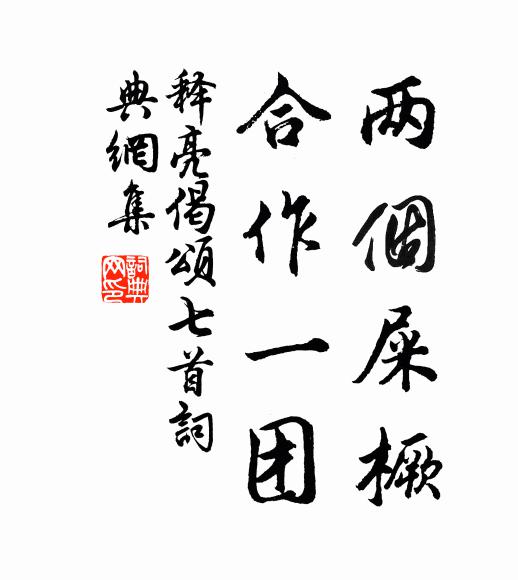 两個屎橛
合作一团
释亮偈頌七首詞
典網集
詞典網印